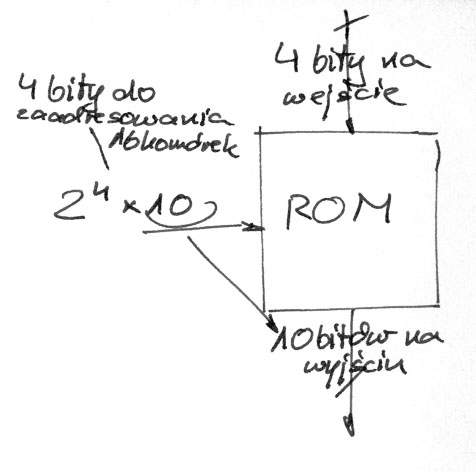 4 bity na
wejście
4 bity do
zaadresowania
16komórek
2⁴ × 10
ROM
10bitów na
wyjściu